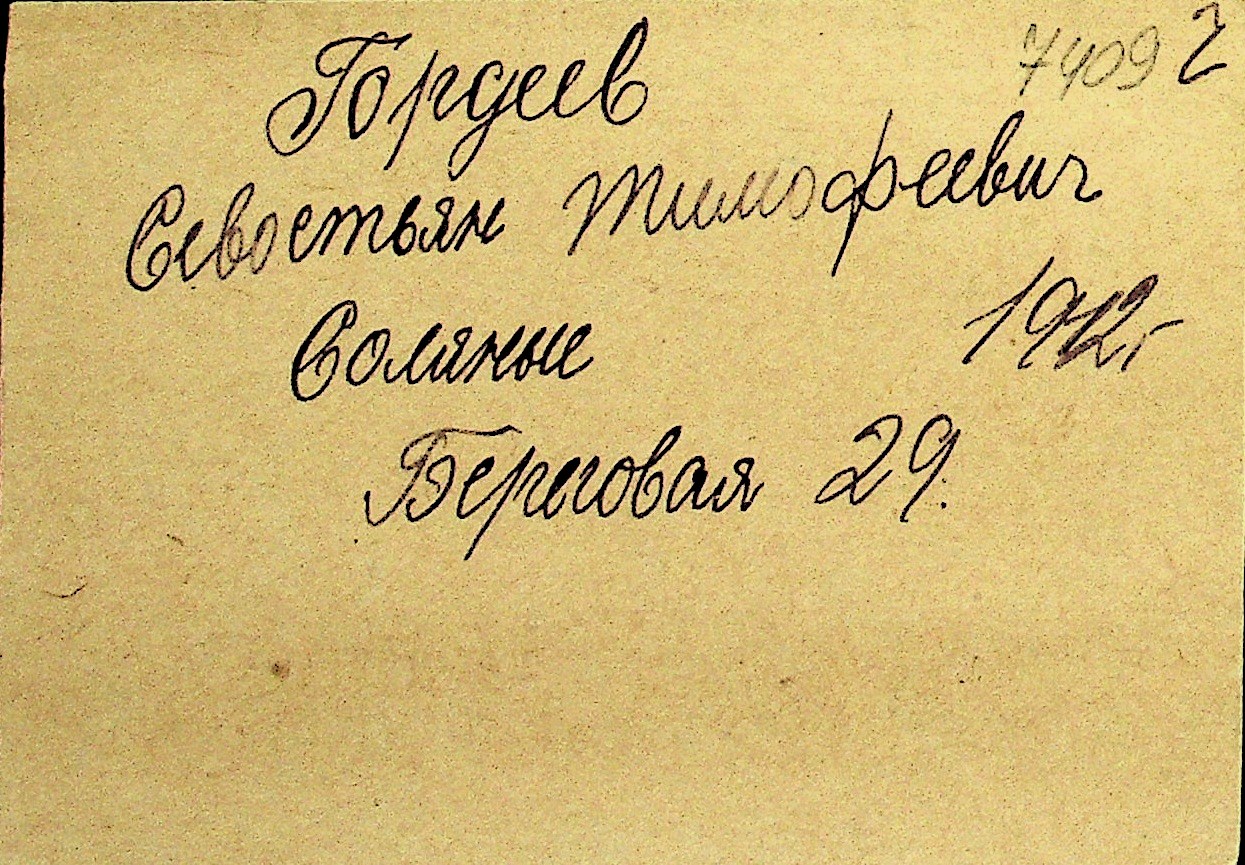 7409 2
Гордеев
Севостьян Тимофеевич
Соляные 1912г
Береговая 29.